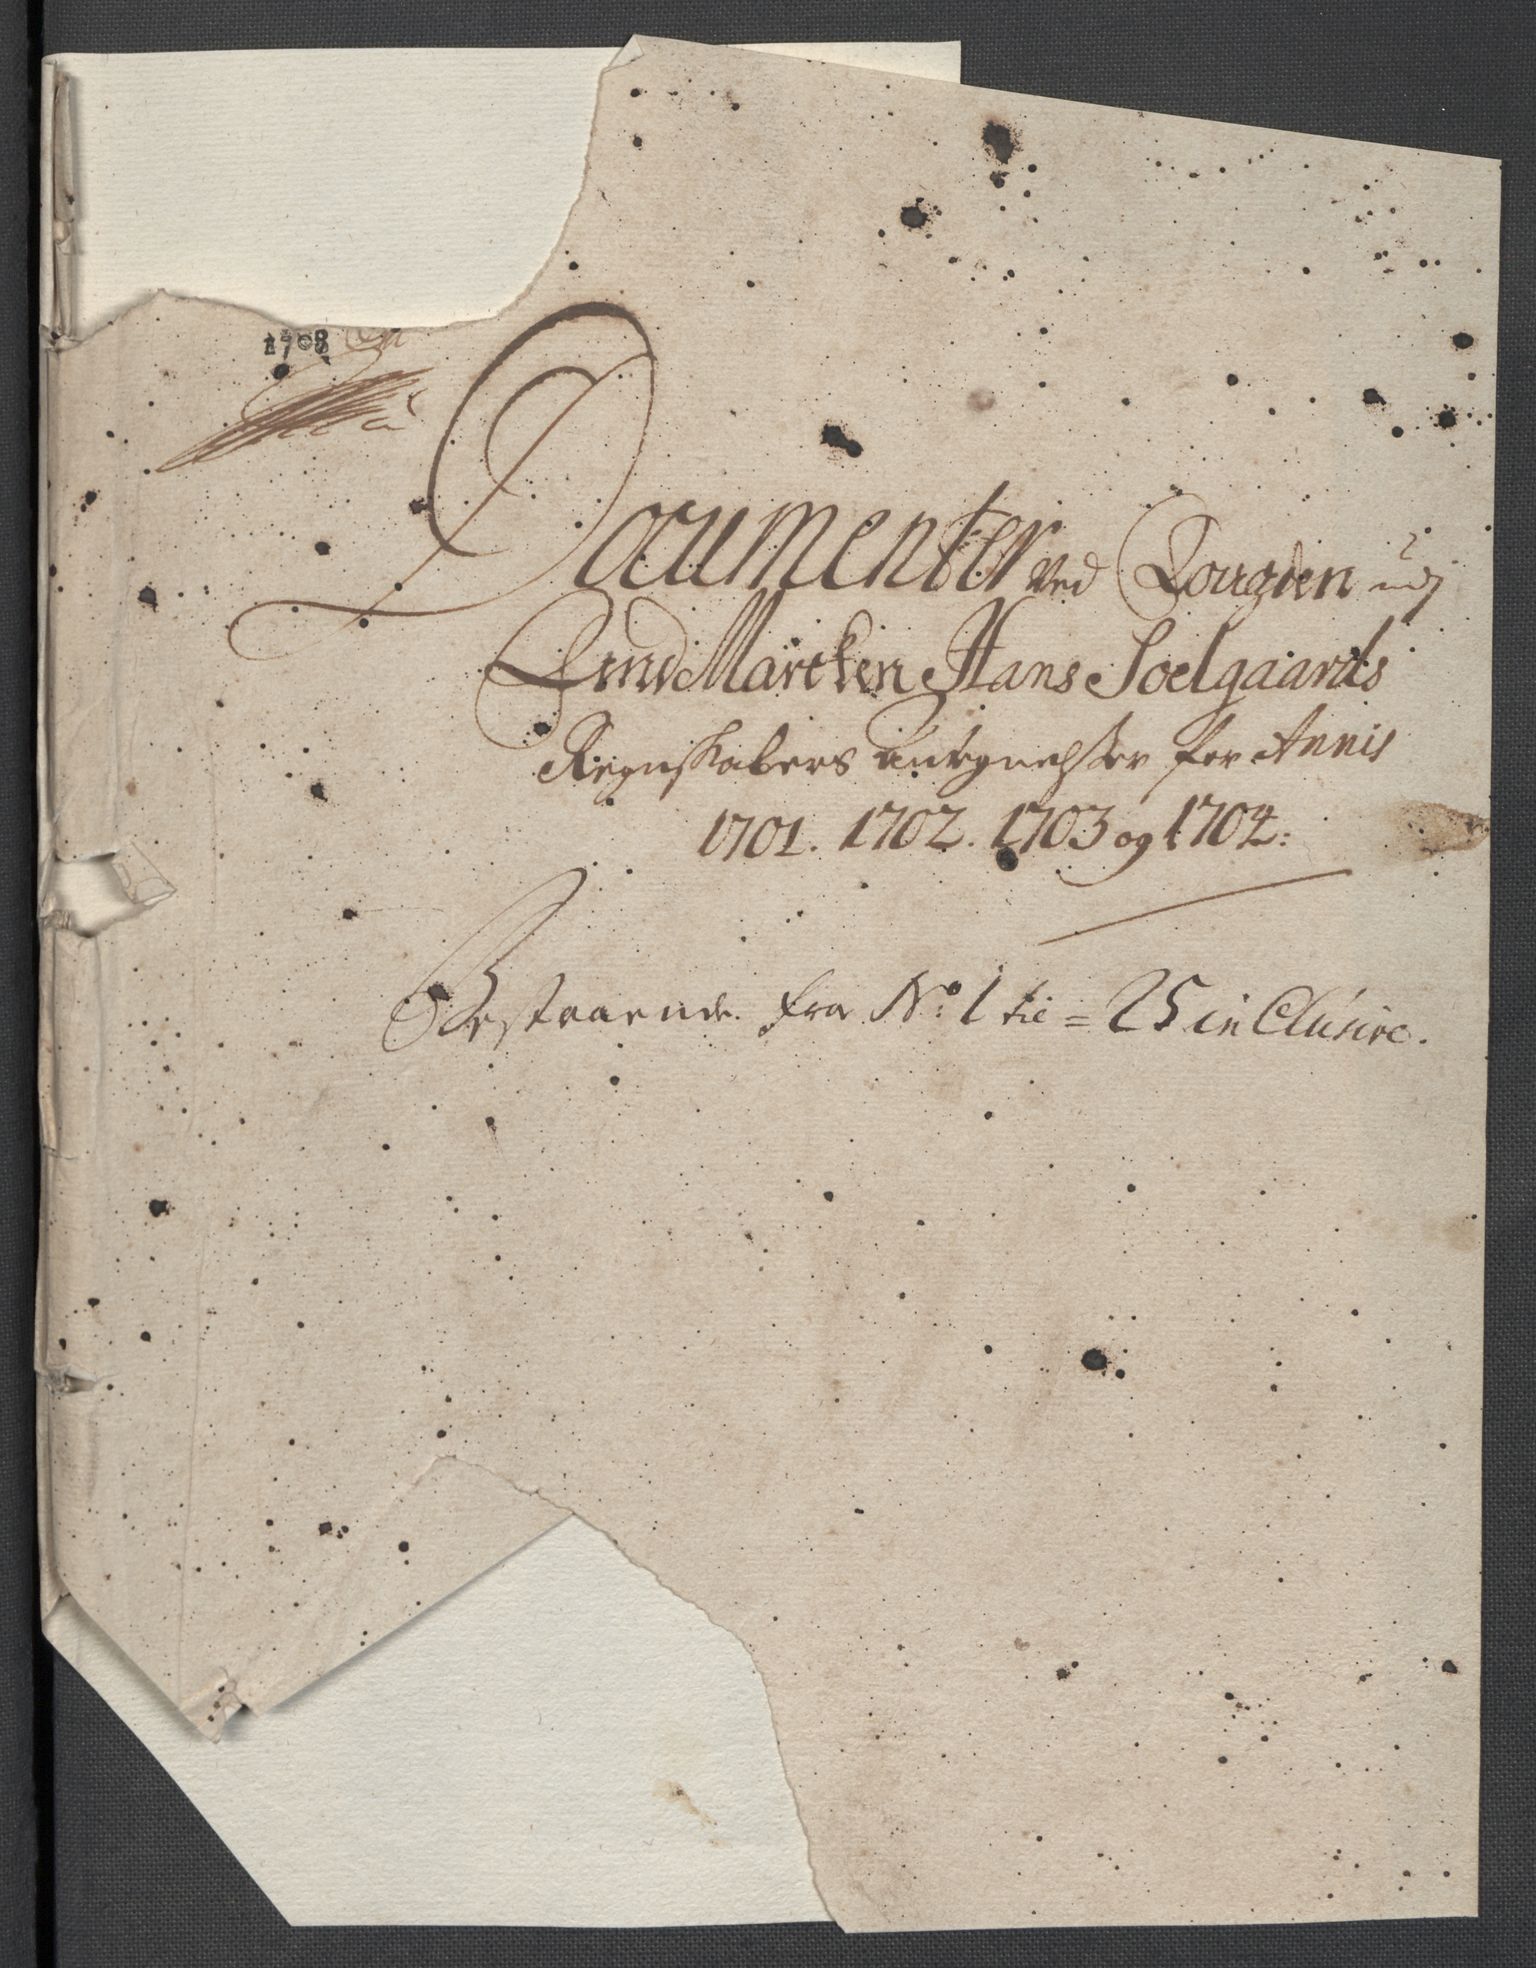 1708
Documenter Ved Fougden udj
FindMarcken Hans Soelgaards
Regnskabers antegnelsser for Annis
1701. 1702. 1703 og 1704:
Bestaaende fra No: 1 til = 25 inClusive.